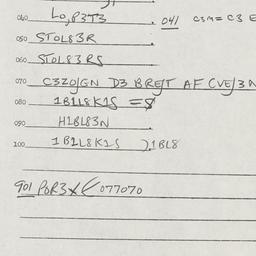 040 Lo,P3T3 . 041 C3M= C3 E
050 STOL83R
060 STOL83RS
070 C3ZO/GN D3 BRE/T AF CVE/3N
080 1B1L8K1S =8
090 H1BL83N
100 1B1L8K1S ),1BL8
901 POR3X E 077070